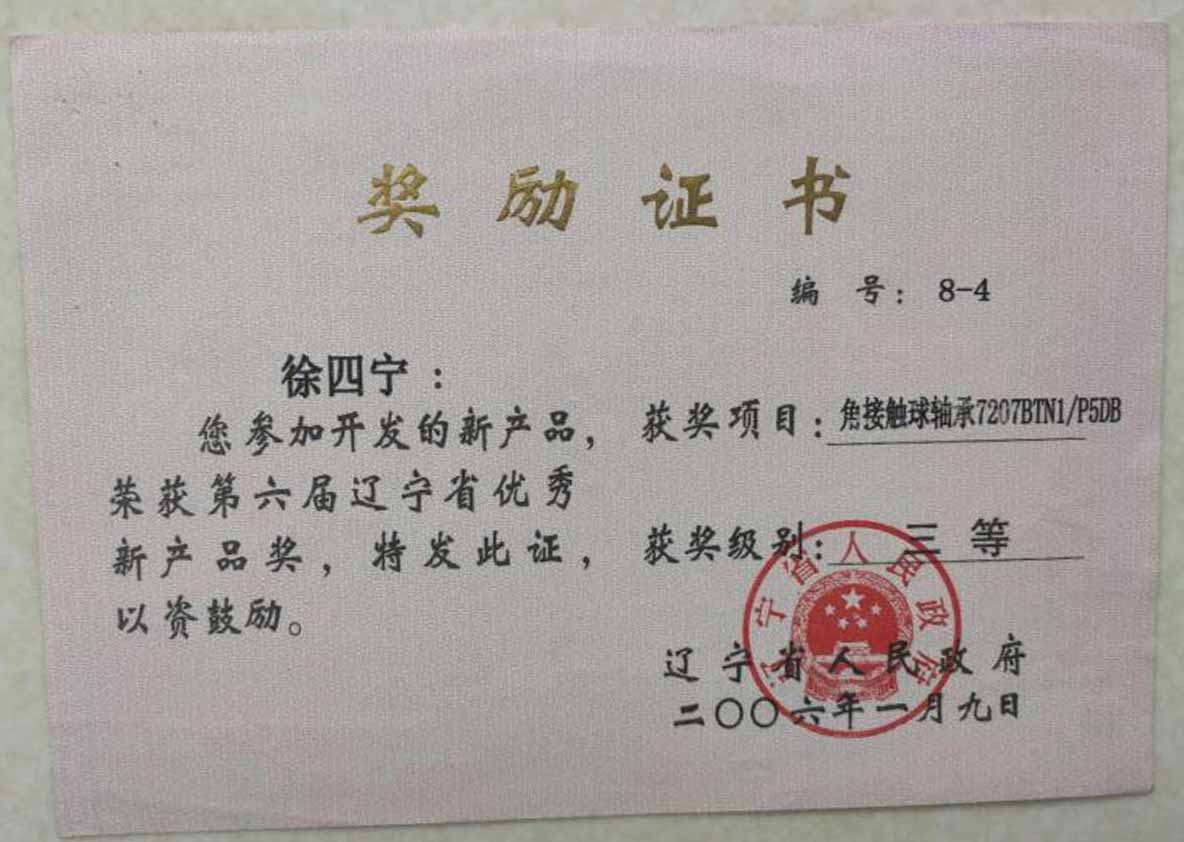 奖励证书
编号：8-4
徐四宁：
您参加开发的新产品，
荣获第六届辽宁省优秀
新产品奖，特发此证，
以资鼓励。
获奖项目：角接触球轴承7207BTN1/P5DB
获奖级别：三等
辽宁省人民政府
辽宁省人民政府
二〇〇六年一月九日